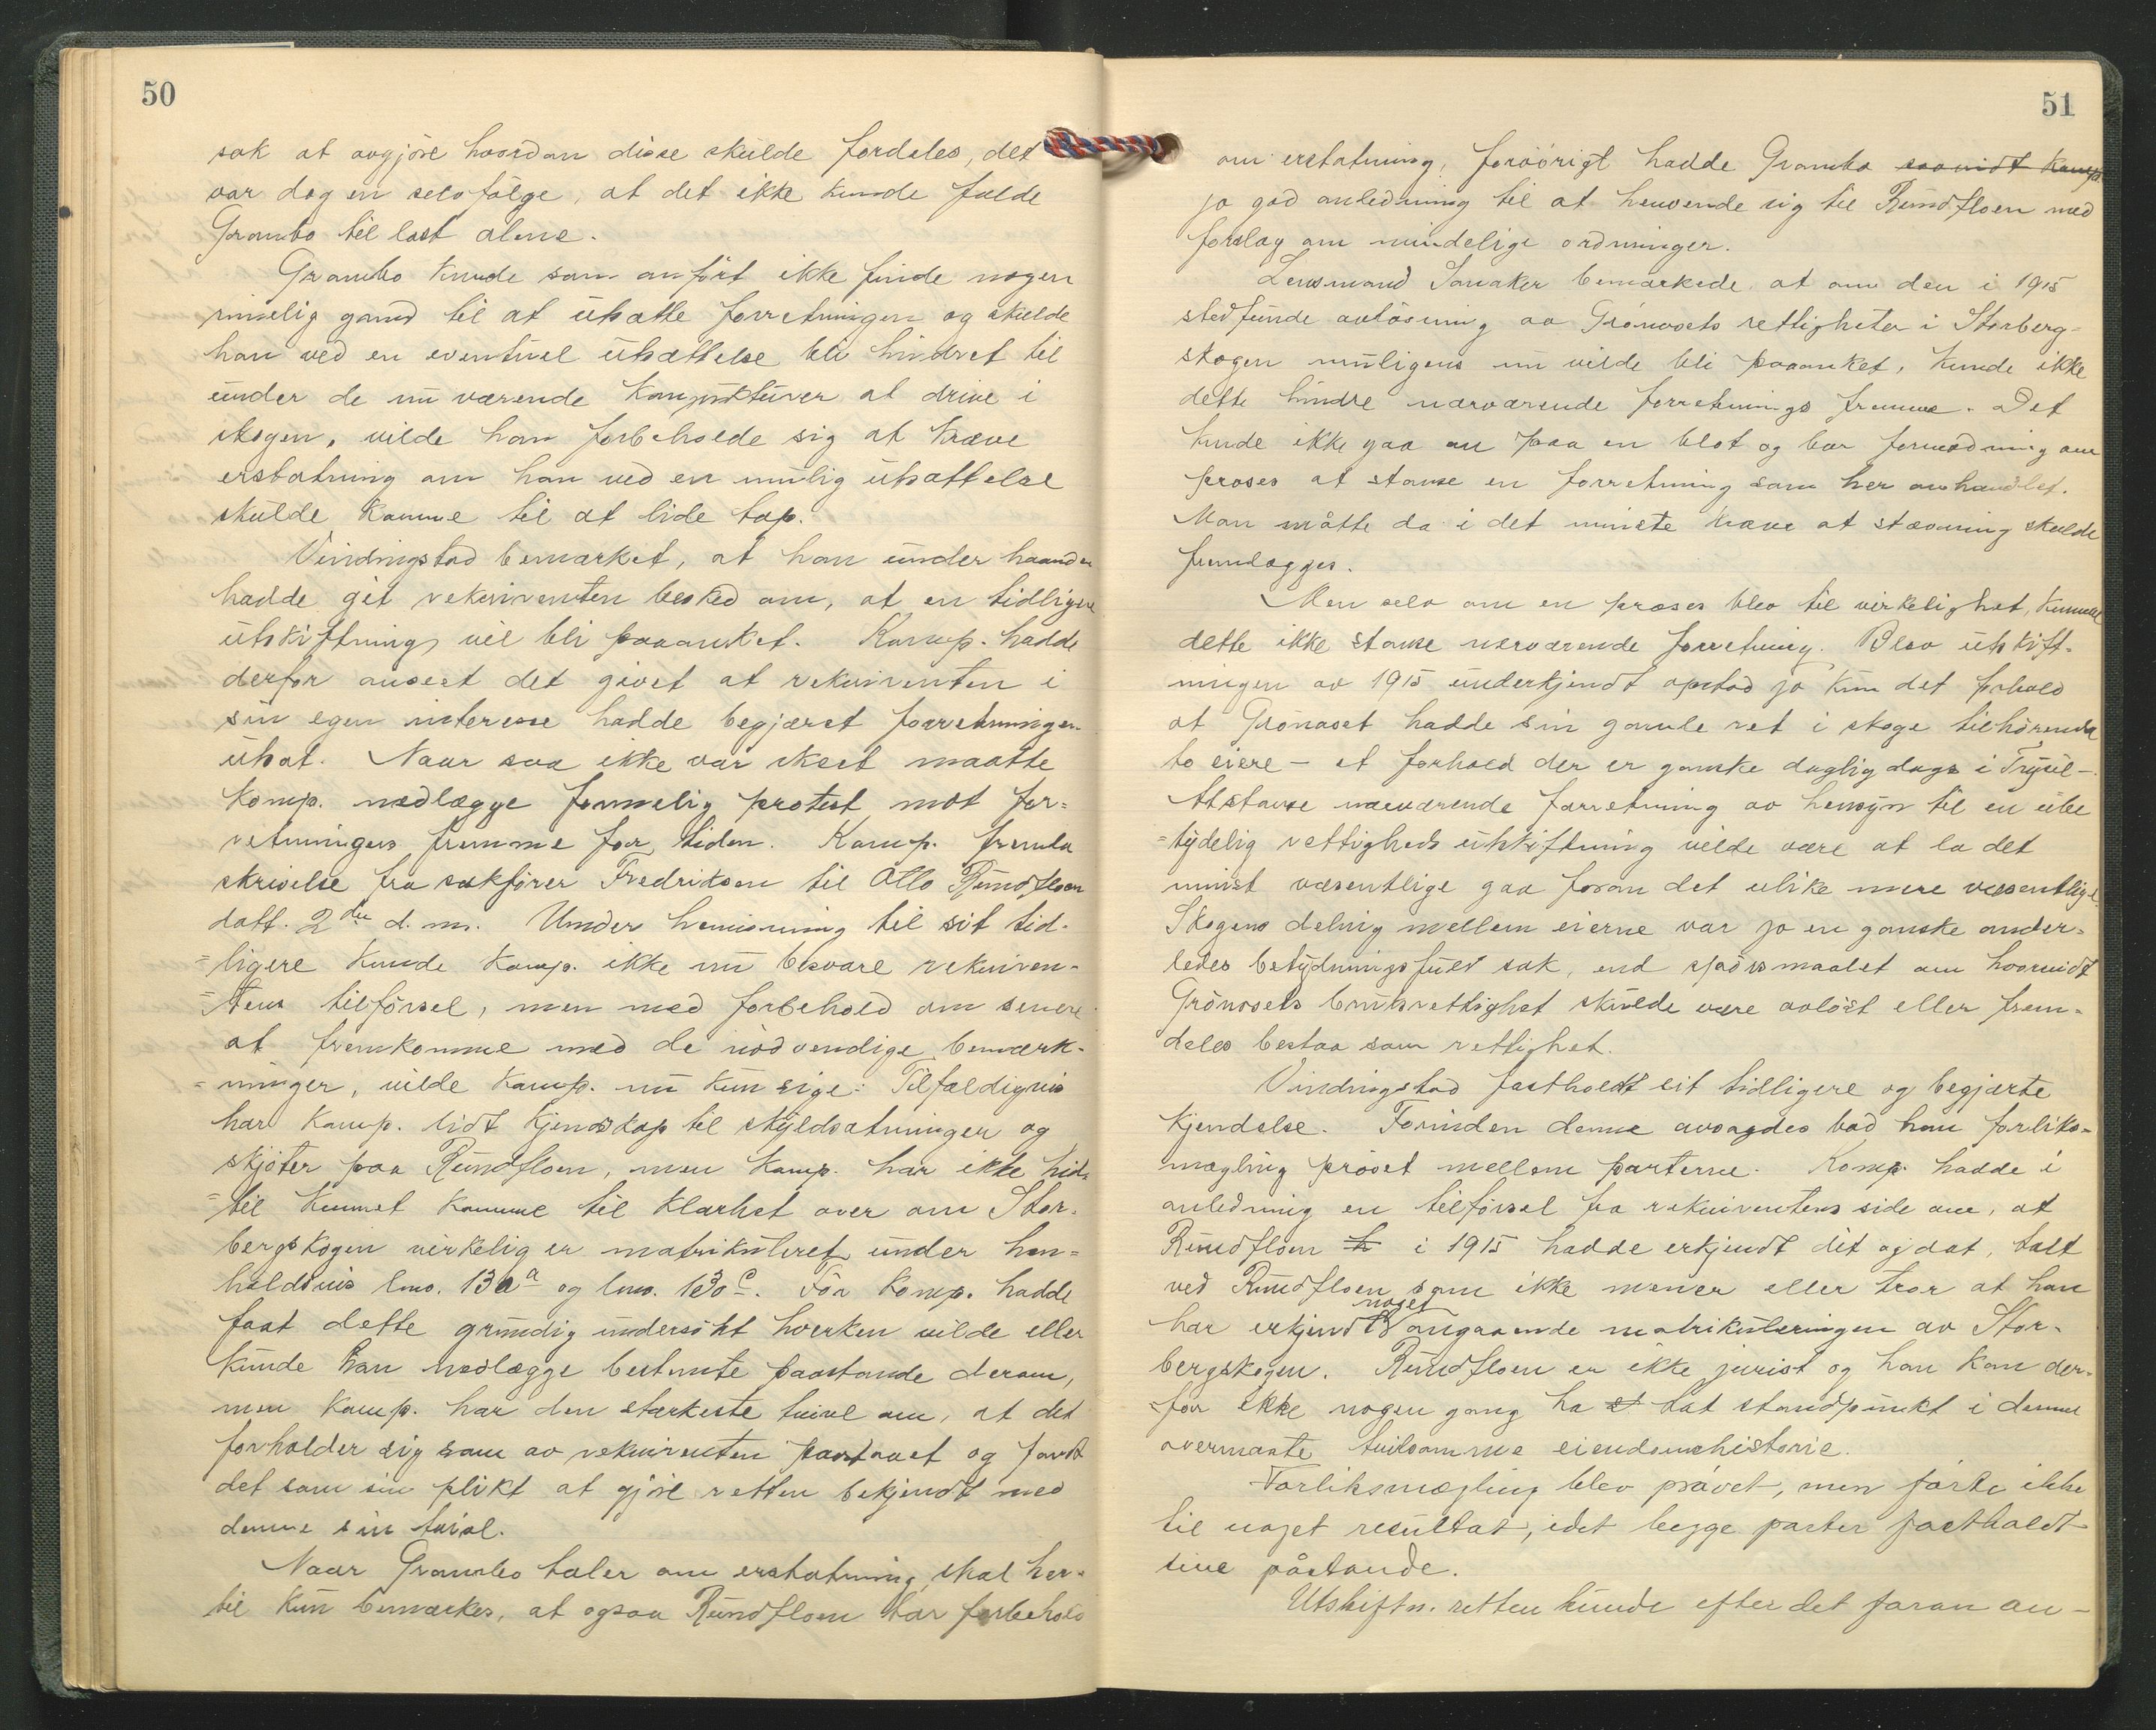 50
sak at avgjöre hvordan disse skulde fordeles, det
var dog en selvfölge, at det ikke kunde falde
Grambo til last alene.
Grambo kunde som anfört ikke finde nogen
rimelig grund til at utsætte forretningen og skulde
han ved en eventuel utsættelse bli hindret til
under de nu værende konjunkturer at drive i
skogen, vilde han forbeholde sig at kræve
erstatning om han ved en mulig utsættelse
skulde komme til at lide tap.
Vindingstad bemærket, at han under haanden
hadde git rekvirenten besked om, at en tidligere
utskiftning vil bli paaanket. Komp. hadde
derfor anseet det givet at rekvirenten i
sin egen interesse hadde begjæret forretningen
utsat. Naar saa ikke var skeet maatte
komp. nedlægge formelig protest mot for=
retningens fremme for tiden. Komp. fremla
skrivelse fra sakförer Fredriksen til Otto Rundfloen
datt. 2den d. m. Under henvisning til sit tid-
=ligere kunde komp. ikke nu besvare rekviren-
=tens tilförsel, men med forbehold om senere
at fremkomme med de nödvendige bemærk-
=ninger, vilde komp. nu kun sige: Tilfældigvis
har komp. lidt kjendskap til skyldsætningen og
skjöter paa Rundfloen, men komp. har ikke hid=
=til kunnet komme til klarhet over om Stor-
bergskogen virkelig er matrikuleret under hen=
holdsvis lnr. 130a og lnr. 130c. För komp. hadde
faat dette grundig undersökt hverken vilde eller
kunde han nedlægge bestemte paastande derom,
men komp. har den stærkeste tvivl om, at det
forholder sig som av rekvirenten paastaaet og fandt
det som sin plikt at gjöre retten bekjendt med
denne sin tvivl.
Naar Grambo taler om erstatning, skal her-
til kun bemærkes, at ogsaa Rundfloen tar forbehold
51
om erstatning, forövrigt hadde Grambo saavidt komp.
jo god anledning til at henvende sig til Rundfloen med
forslag om mindelige ordninger.
Lensmand Sanaker bemærkede at om den i 1915
stedfunde avlösning av Grönoset rettigheter i Storberg-
skogen muligens nu vilde bli paaanket, kunde ikke
dette hindre nærværende forretnings fremme. Det
kunde ikke gaa an paa en blot og bar formodning om
proses at stanse en forretning som her omhandlet.
Man måtte da i det minste kræve at stævning skulde
fremlægges.
Men selv om en proses blev til virkelighet, kunde
dette ikke stanse nærværende forretning. Blev utskift-
ningen av 1915 underkjendt opstod jo kun det forhold
at Grönoset hadde sin gamle ret i skoge tilhörende
to eiere – et forhold der er ganske daglig dags i Trysil –
At stanse nærværende forretning av hensyn til en ube
=tydelig rettigheds utskiftning vilde være at la det
minst væsentlige gaa foran det ulike mere væsentlige.
Skogens deling mellem eierne var jo en ganske ander=
ledes betydningsfuld sak, end spörsmaalet om hvorvidt
Grönosets bruksrettighet skulde være avlöst eller frem-
deles bestaa som rettighet.
Vindingstad fastholdt sit tidligere og begjærte
kjendelse. Forinden denne avsagdes bad han forliks=
mægling prövet mellem parterne. Komp. hadde i
anledning en tilförsel fra rekvirentens side om, at
Rundfloen h i 1915 hadde erkjendt dit og dat, talt
ved Rundfloen som ikke mener eller tror at han
har erkjendt noget angaaende matrikuleringen av Stor-
bergskogen. Rundfloen er ikke jurist og han kan der-
=for ikke nogen gang ha et tat standpunkt i denne
overmaate tvilsomme eiendomshistorie.
Forliksmægling blev prövet, men förte ikke
til noget resultat, idet begge parter fastholdt
sine påstande.
Utskiftn. retten kunde efter det foran an-